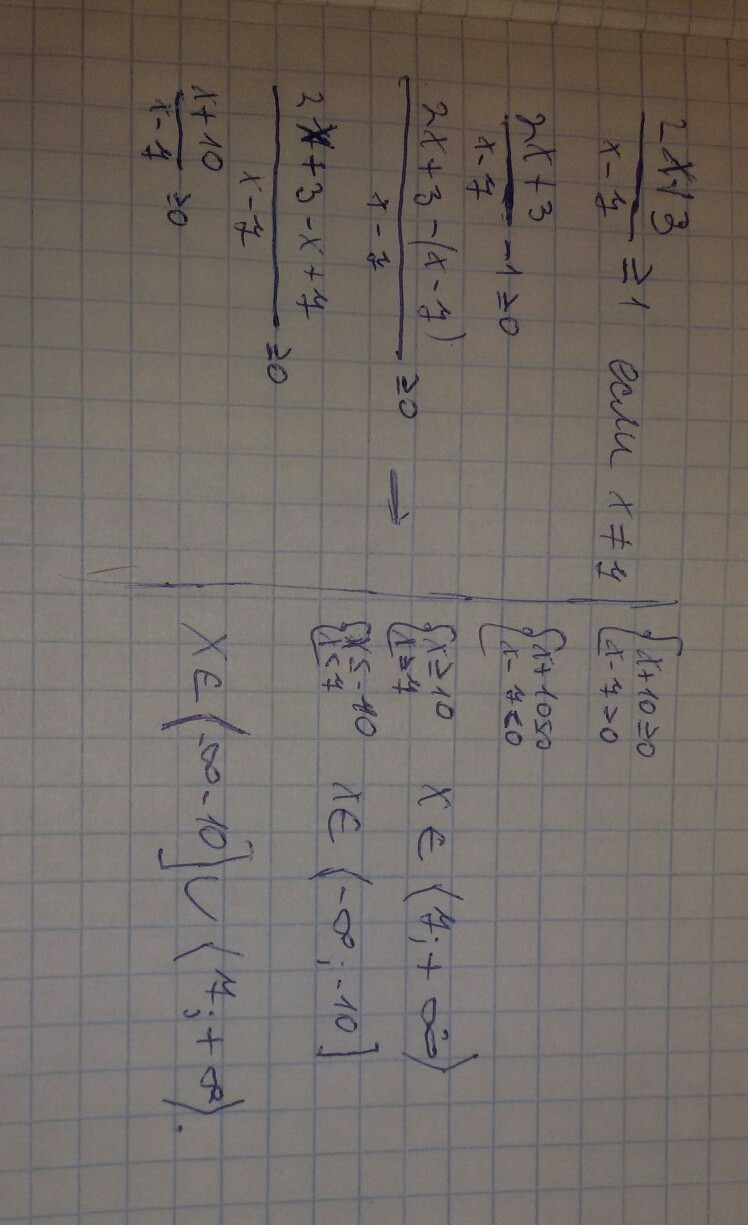 2x+3/x-7 ≥1 если x≠7
2x+3/x-7 -1≥0
2x+3-(x-7)/x-7 ≥0
2x+3-x+7/x-7 ≥0
x+10/x-7 ≥0
→
{x+10≥0
x-7>0
{x+10≤0
x-7<0
{x≥10
x>7
x∈(7;+∞)
{x≤-10
x<7
x∈(-∞;-10]
X∈(-∞-10]∪(7;+∞).